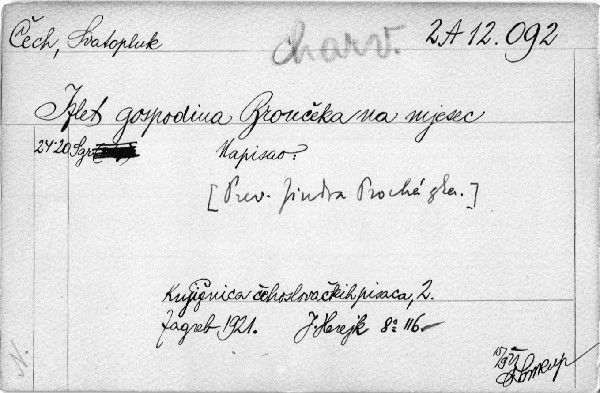 Čech, Svatopluk charv. 2A12.092
Izlet gospodina Broučeka na mjesec
Napisao:
[Prev. Jindra Procházka.]
Knjižnica čehoslovačkih pisaca, 2.
Zagreb 1921. J. Herejk 8° 116
N.